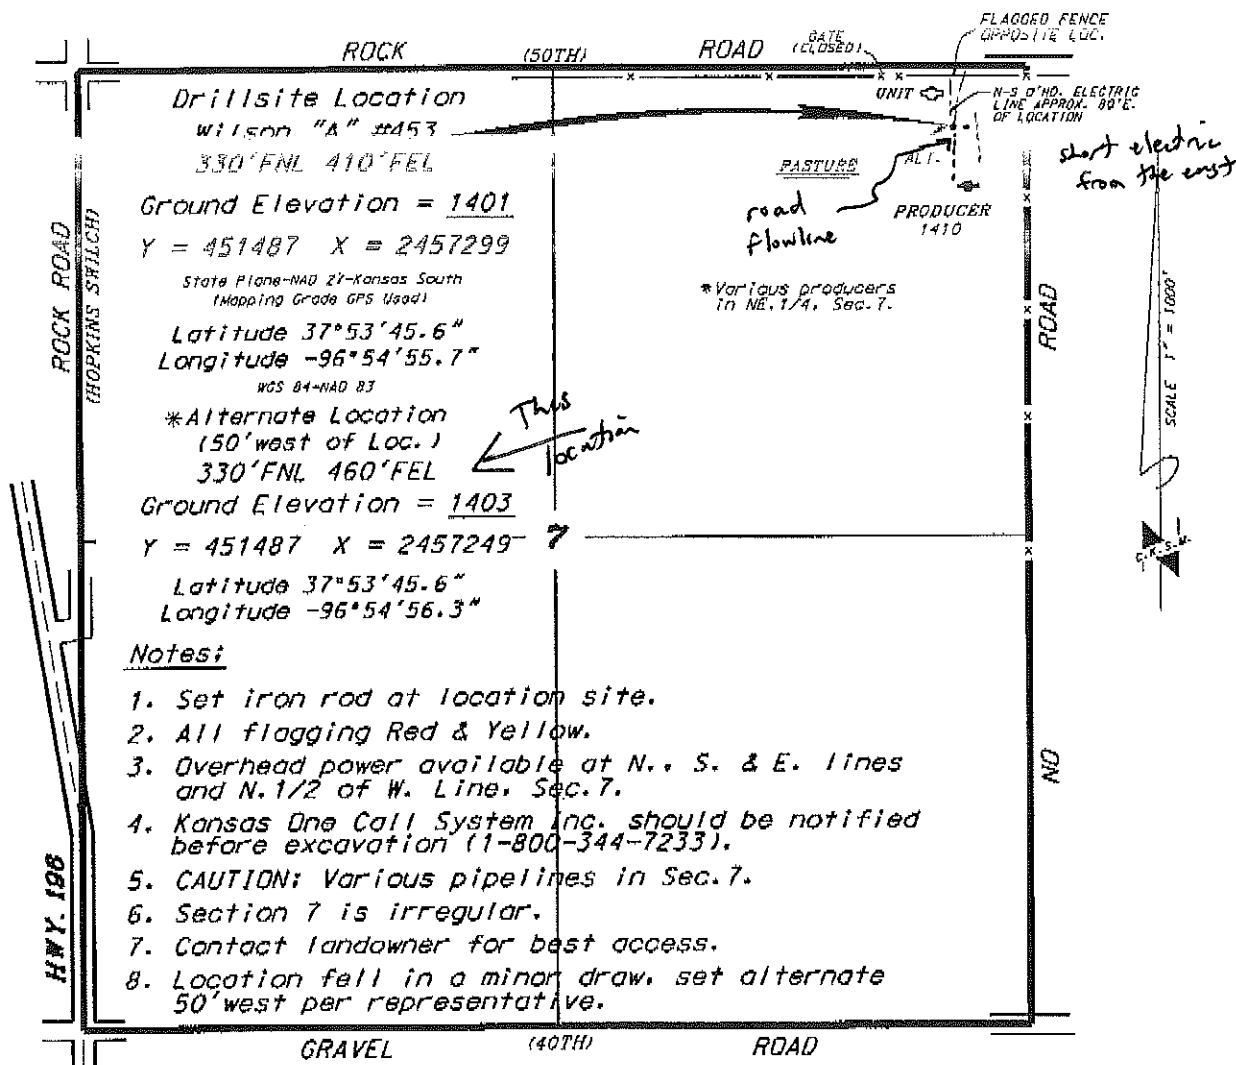 ROCK (50TH) ROAD
GATE
(CLOSED)
FLAGGED FENCE
OPPOSITE LOC.
UNIT
N-S O'HD. ELECTRIC
LINE APPROX. 80'E.
OF LOCATION
short electric
from the east
PASTURE
ALT.
road
flowline
PRODUCER
1410
*Various producers
in NE.1/4, Sec.7.
Drillsite Location
Wilson "A" #453
330'FNL 410'FEL
Ground Elevation = 1401
Y = 451487 X = 2457299
State Plane-NAD 27-Kansas South
(Mapping Grade GPS Used)
Latitude 37°53'45.6"
Longitude -96°54'55.7"
WGS 84-NAD 83
*Alternate Location
(50'west of Loc.)
330'FNL 460'FEL
This
location
Ground Elevation = 1403
Y = 451487 X = 2457249
7
Latitude 37°53'45.6"
Longitude -96°54'56.3"
Notes:
1. Set iron rod at location site.
2. All flagging Red & Yellow.
3. Overhead power available at N., S. & E. lines
and N.1/2 of W. Line, Sec.7.
4. Kansas One Call System Inc. should be notified
before excavation (1-800-344-7233).
5. CAUTION: Various pipelines in Sec.7.
6. Section 7 is irregular.
7. Contact landowner for best access.
8. Location fell in a minor draw, set alternate
50'west per representative.
ROCK ROAD
(HOPKINS SWILCH)
HWY. 196
GRAVEL (40TH) ROAD
NO ROAD
SCALE 1" = 1000'
C.K.S.M.